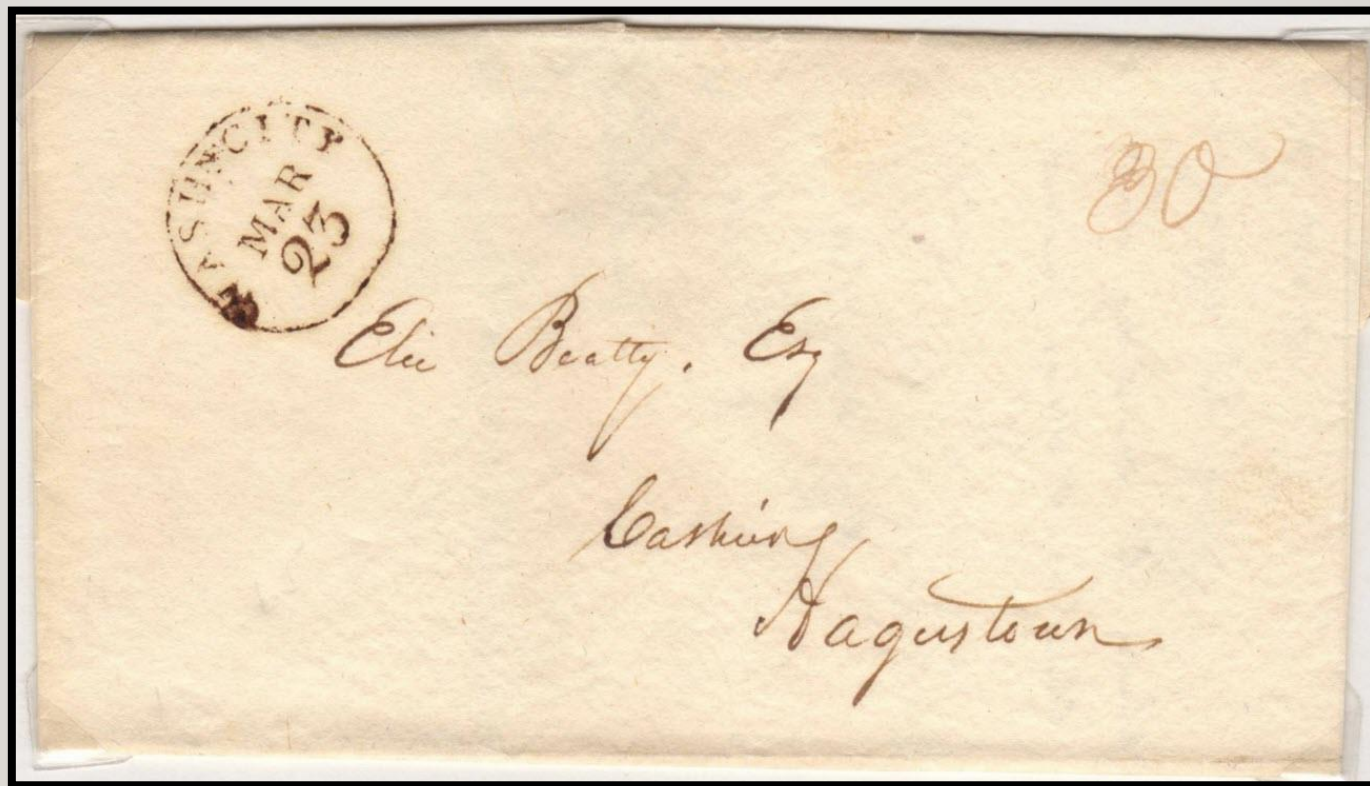 WASHN CITY
MAR
23
30
Elie Beatty. Esq
Cashier
Hagerstown